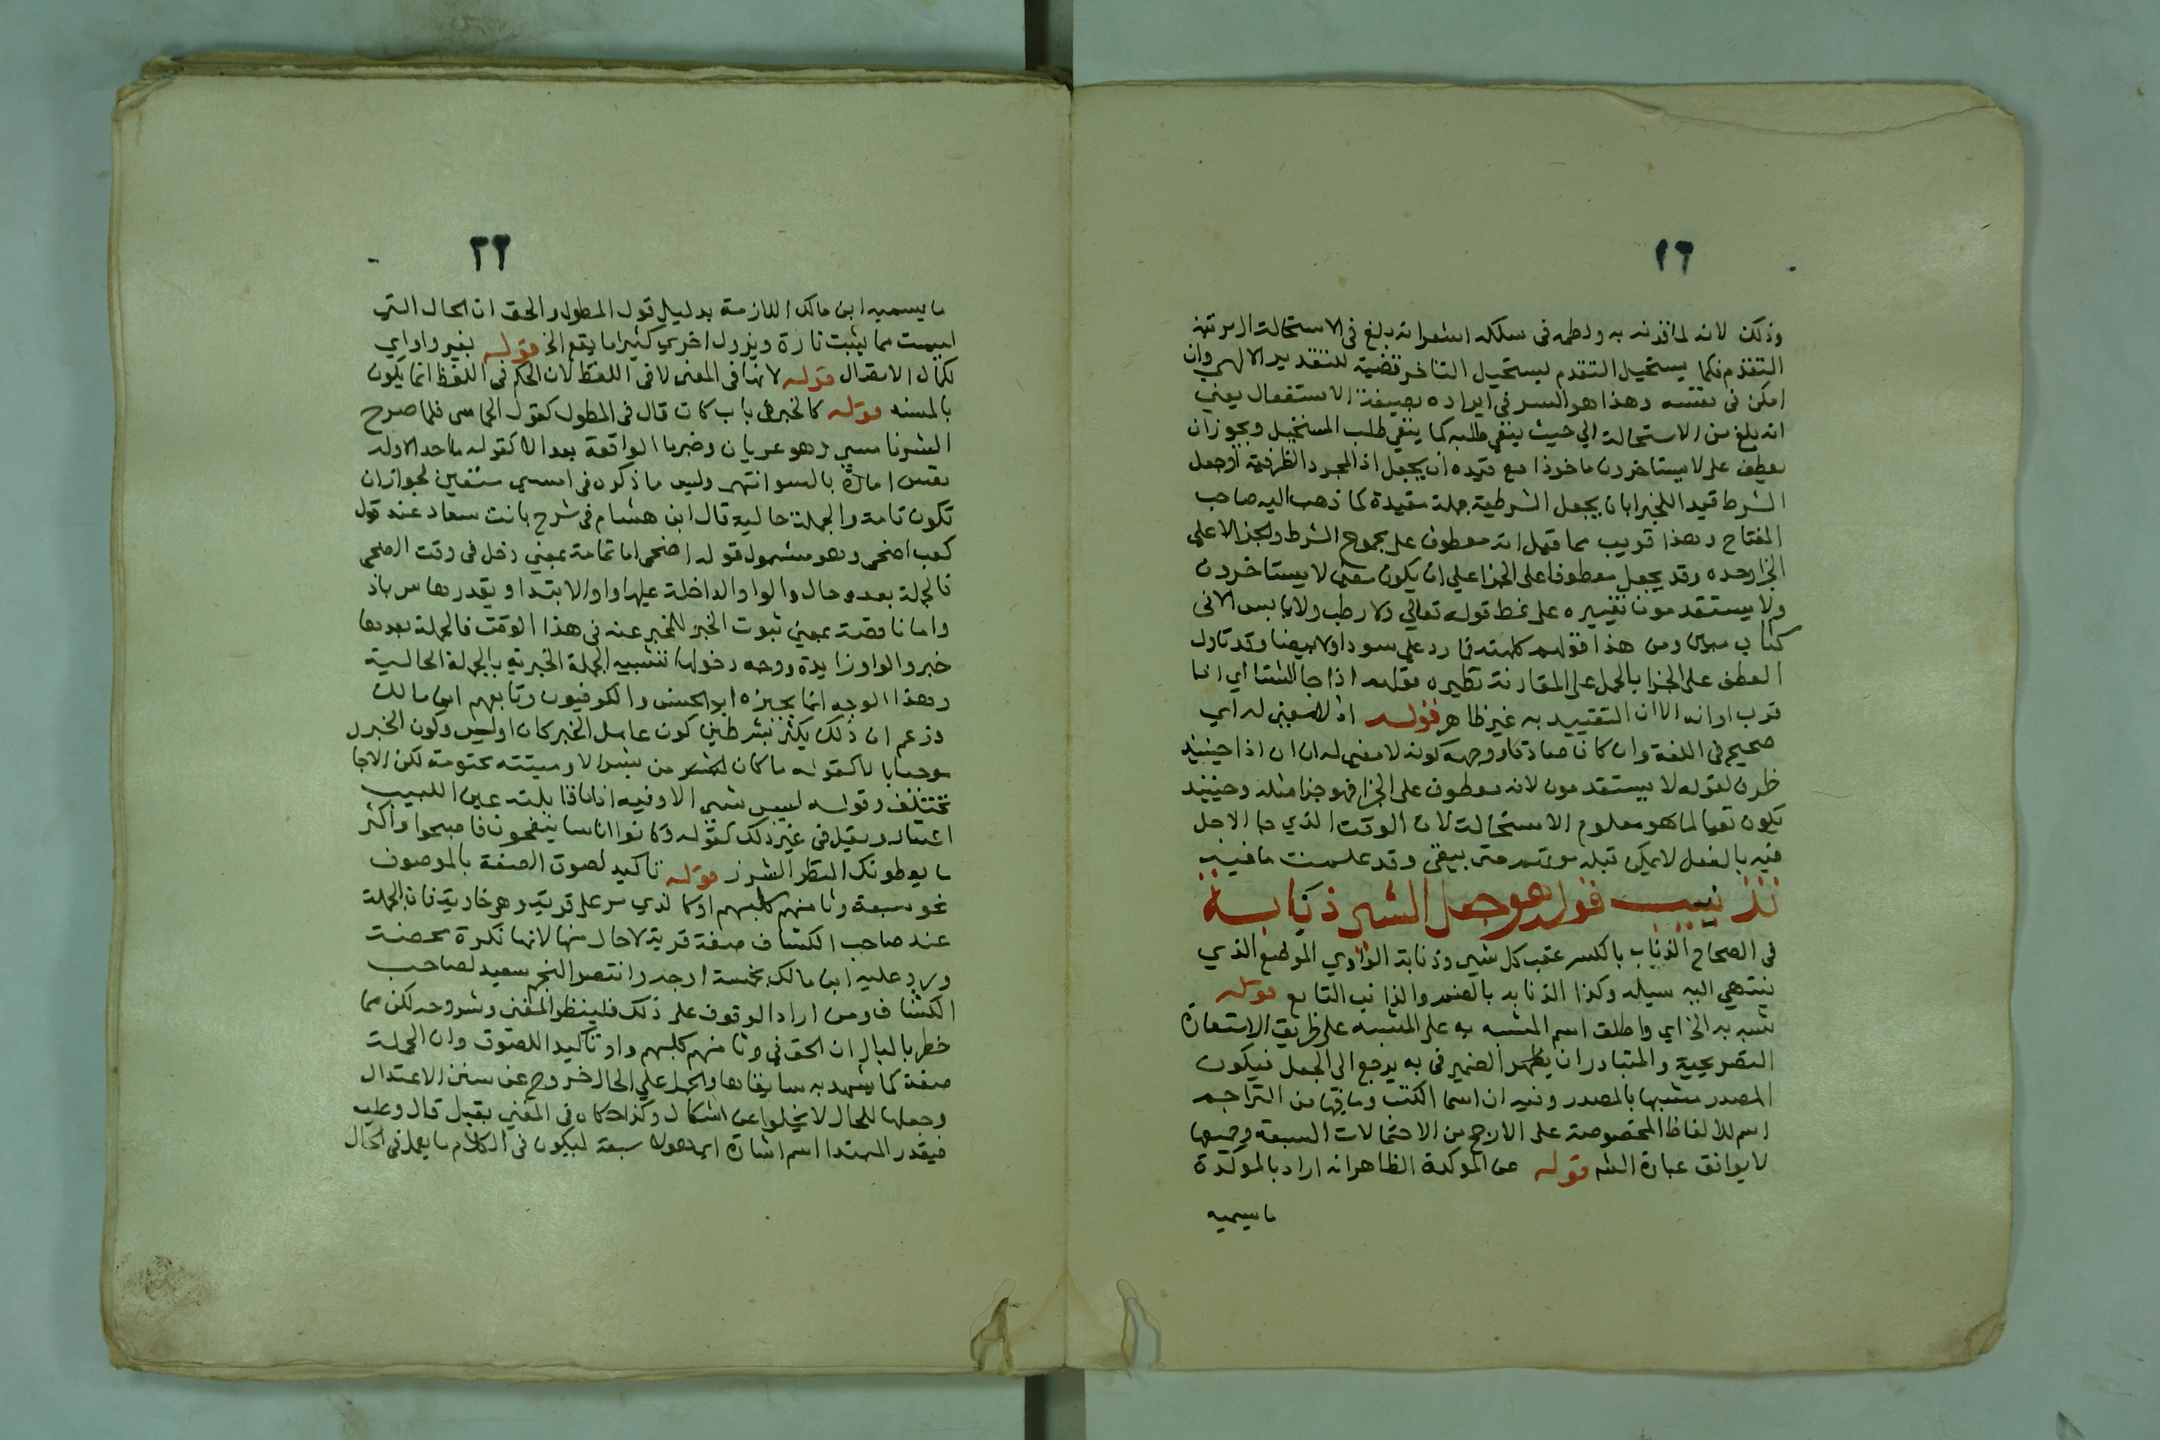 ١٦
وذلك لانه لما قرنه به ونظمه في سلكه اشعر انه بلغ في الاستحالة الى مرتبة
التقدم فكما يستحيل التقدم يستحيل التاخر قضية للتقدير الالهي وان
امكن في نفسه وهذا هو السر في ايراده بصيغة الاستفعال يعني
انه بلغ من الاستحالة الي حيث ينفي طلبه كما ينفي طلب المستحيل ويجوز ان
يعطف على لا يستاخرون ماخوذا مع قيده ان يجعل اذا لمجرد الظرفية اوجعل
الشرط قيد اللخبر ابان يجعل الشرطية جملة مقيدة كما ذهب اليه صاحب
المفتاح وهذا قريب مما قيل انه معطوف على مجموع الشرط والجزا لا على
الجزا وحده وقد يجعل معطوفا على الجزا علي ان يكون معني لا يستاخرون
ولا يستقدمون تغييره على نمط قوله تعالي ولا رطب ولا يابس الا في
كتاب مبين ومن هذا قولهم كلمته فا رد علي سودا ولا بيضا وقد تاول
العطف على الجزا بالحمل على المقارنة نظيره قولهم اذا جا الشتا اي اذا
قرب اوانه الا ان التقييد به غير ظاهر قوله اذ لا معني له اي
صحيح في اللغة وان كان صادقا ووجه كونه لا معني له ان اذا حينيذ
ظرف لقوله لا يستقدمون لانه معطوف على الجزا فهو جزا مثله وحينيذ
يكون نفيا لما هو معلوم الاستحالة لان الوقت الذي جا الاجل
فيه بالفعل لا يمكن قبله موتهم حتي ينفي وقد علمت ما فيه
تذنيب قوله هو جعل الشي ذنابة
في الصحاح الذناب بالكسر عقب كل شي وذنابة الوادي الموضع الذي
ينتهي اليه سيله وكذا الذنابه بالضم والذانب التابع قوله
شبه به الخ اي واطلق اسم المشبه به على المشبه على طريق الاستعارة
التصريحية والمتبادر ان الضمير في به يرجع الى الجعل فيكون
المصدر مشبها بالمصدر وفيه ان اسما الكتب وما فيها من التراجم
اسم للالفاظ المخصوصة على الارجح من الاحتمالات السبعة وجميعها
لا يوافق عبارة الشه قوله من الموكدة الظاهر انه اراد بالموكدة
ما يسميه
٢٢
ما يسميه ابن مالك اللازمة بدليل قول المطول والحق ان الحال التي
ليست مما يثبت تارة ويزول اخري كثيرا ما يقع الخ قوله بغير واو اي
لكمال الاتصال قوله لانها في المعنى لا في اللفظ لان الحكم في اللفظ انما يكون
بالمسند قوله كالخبر في باب كان قال في المطول كقول الحماسي فلما صرح
الشر فامسي وهو عريان وخبر ما الواقعة بعد الا كقوله ما احد الا وله
نفس امارة بالسو انتهي وليس ما ذكره في امسي متعين لجواز ان
تكون تامة والجملة حالية قال ابن هشام في شرح بانت سعاد عند قول
كعب اضحي وهو مشمول قوله اضحى اما تامة بمعني دخل في وقت الضحي
فالجملة بعده حال والواو الداخلة عليها واو الابتدا ويقدرها س باذ
واما ناقصة بمعني ثبوت الخبر للمخبر عنه في هذا الوقت فالجملة بعدها
خبر والواو زايدة ووجه دخولها تشبيه الجملة الخبرية بالجملة الحالية
وهذا الوجه انما يجيزه ابو الحسن والكوفيون وتابعهم ابن مالك
وزعم ان ذلك يكثر بشرطين كون عامل الخبر كان او ليس وكون الخبر
موجبا بالا كقوله ما كان من بشر الا وميتته محتومة لكن الاجا
تختلف وقوله ليس شي الا وفيه اذا ما قابلته عين اللبيب
اعتبار ويقل في غير ذلك كقوله وكانوا اناسا ينفحون فاصبحوا واكثر
ما يعطونك النظر الشزر قوله تاكيد لصوق الصفة بالموصوف
نحو سبعة وثامنهم كلبهم او كالذي مر على قرية وهي خاوية فان الجملة
عند صاحب الكشاف صفة قرية لا حال منها لانها نكرة محضة
ورد عليه ابن مالك بخمسة اوجه وانتصر النجم سعيد لصاحب
الكشاف ومن اراد الوقوف على ذلك فلينظر المغني وشروحه لكن مما
خطر بالبال ان الحق في وثامنهم كلبهم واو تاكيد اللصوق وان الجملة
صفة كما يشهد به سابقاها والحمل علي الحال خروج عن سنن الاعتدال
وجعلها للحال لا يخلوا عن اشكال وكذا حكاه في المغني بقيل قال وعليه
فيقدر المبتدا اسم اشارة اي هولا سبعة ليكون في الكلام ما يعمل في الحال